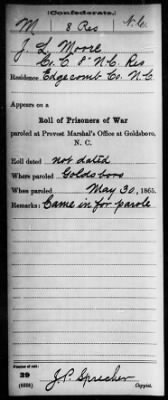 (Confederate.)
M 8 Res N.C.
J. L. Moore
Co. C 8" N.C. Res
Edgecomb Co. N.C
Appears on a
Roll of Prisoners of War
paroled at Provost Marshal's Office at Goldsboro,
N. C.
Roll dated not dated
Where paroled Goldsboro
When paroled May 30, 1865.
Remarks: Came in for parole
Number of roll:
29
J. P. Sprecher
Copyist.